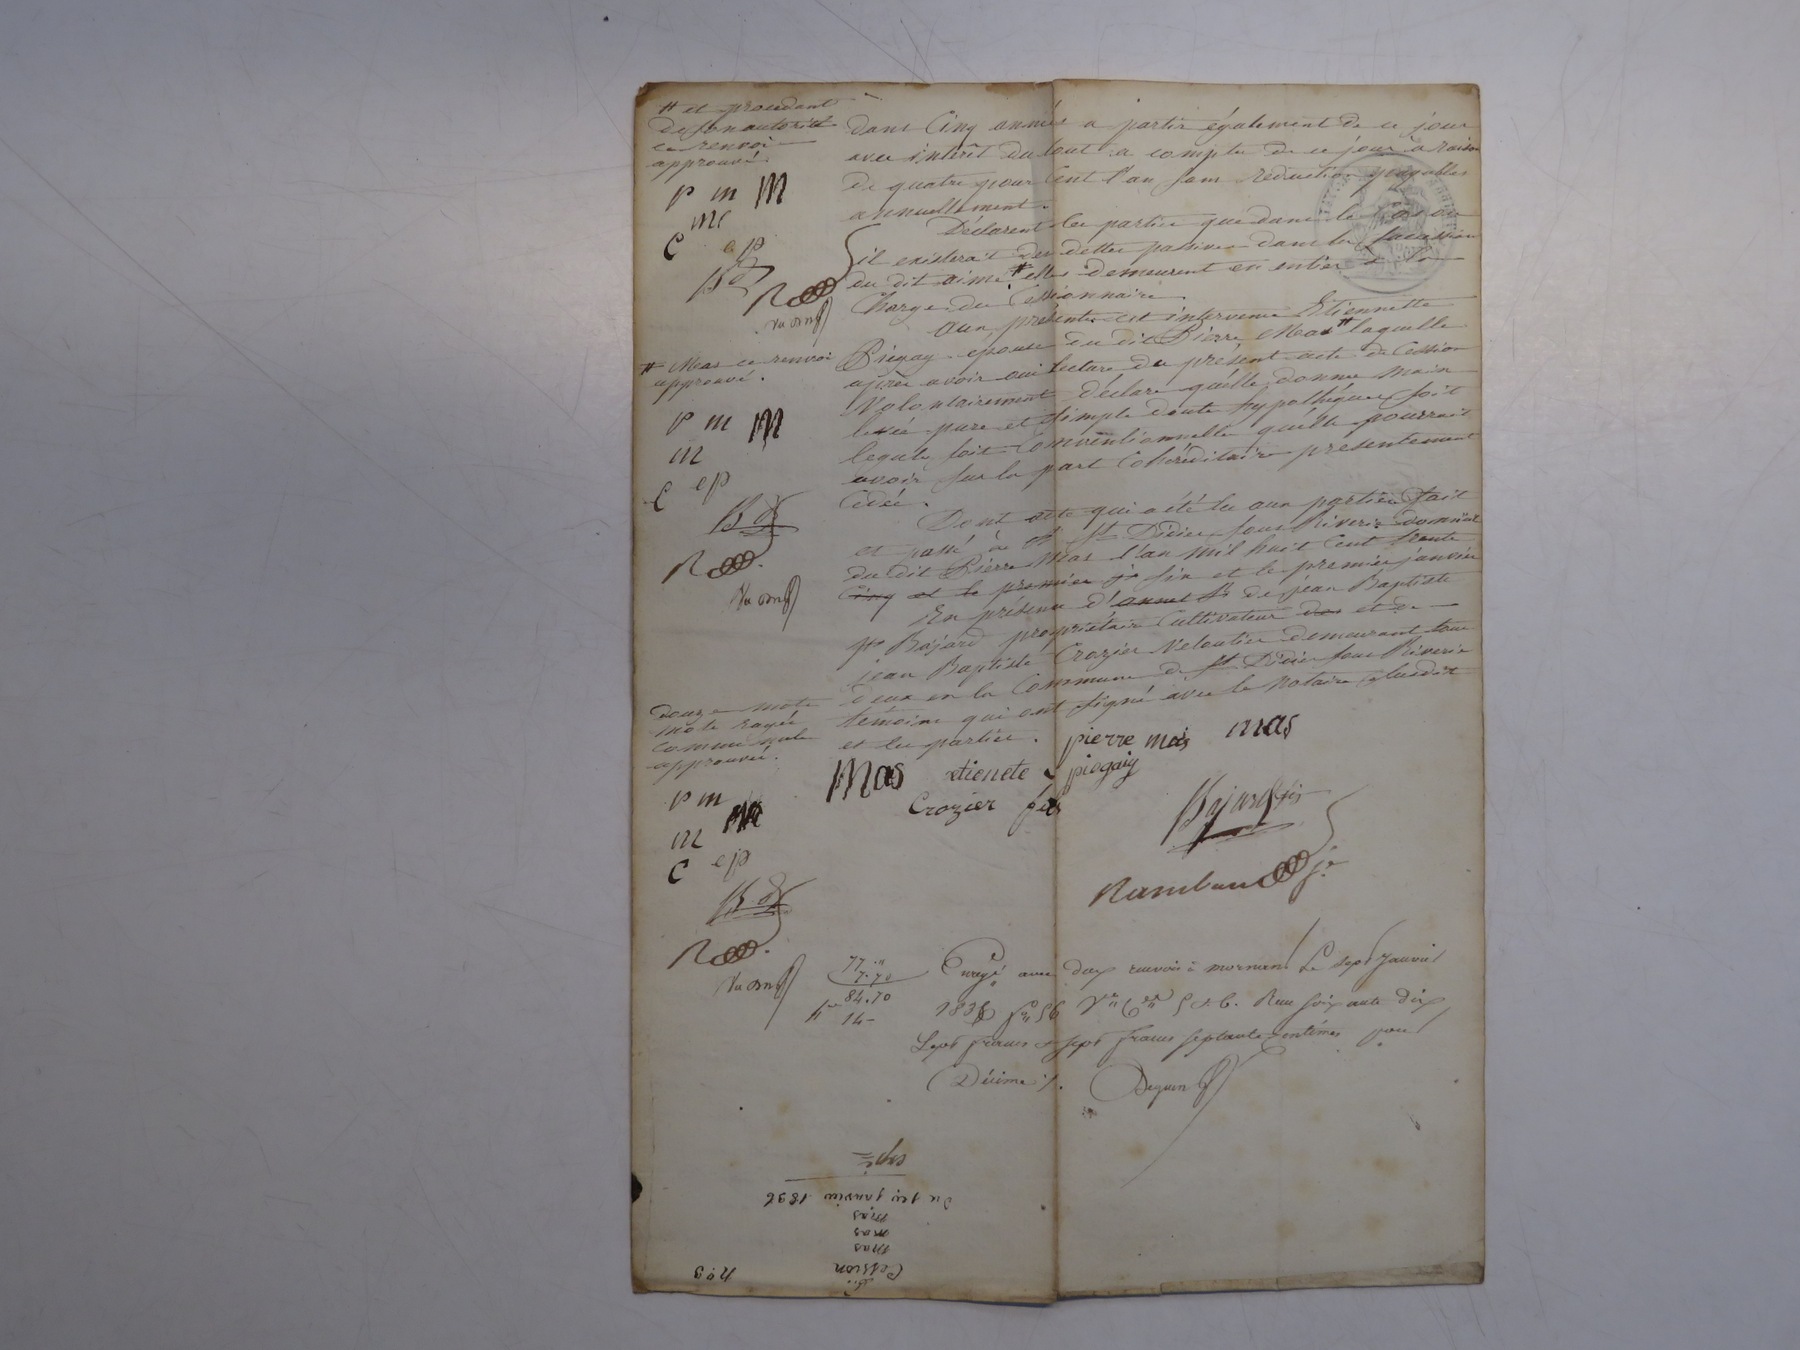 # et procedant
de son autorité
ce renvoi
approuvé.
P m M
mc
C e p
B d
R
# Mas ce renvoi
approuvé.
P m M
m
C ep
B d
R
douze mots
mots rayés
comme nuls
approuvés.
P m
m
C ep
B. d
R
dans Cinq années a partir également de ce jour
avec intérêt du tout a compter de ce jour à raison
de quatre pour Cent l'an sans réduction payables
annuellement.
Déclarent les parties que dans le Cas ou
il existerait des dettes passives dans la succession
du dit aimé # elles demeurent en entier à la
Charge du Cessionnaire.
aux présentes est intervenue Etiennette
Piégay epouse du dit Pierre Mas # laquelle
après avoir oui lecture du présent acte de Cession
Volontairement déclare qu'elle donne main
levée pure et simple de toute hypothéque soit
legale, soit Conventionnelle qu'elle pourrait
avoir sur la part Cohéréditaire présentement
Cédée.
Dont acte qui a été lu aux parties fait
et passé à St Didier sous Riverie domicile
du dit Pierre Mas l'an mil huit Cent trente
Cinq et le premier six et le premier janvier
En présence d' de jean Baptiste
Bajard propriétaire Cultivateur et de
jean Baptiste Crozier Veloutier demeurant tous
deux en la Commune de St Didier sous Riverie
témoins qui ont signé avec le Notaire susdit
et les parties.
pierre mas mas
Mas etienete piegaiy
Crozier fils
Bajard fils
Rambaud je
77."
7.70
84.70
14-
Enregé avec deux renvois à mornant Le sept Janvier
1836 fo 56 Vo Cer 5 & 6. Reçu soixante dix
Sept francs & sept francs septante centimes pour
Décime /.
Deguin
expé
du 1er janvier 1836
mas
mas
mas
Cession
No. 3